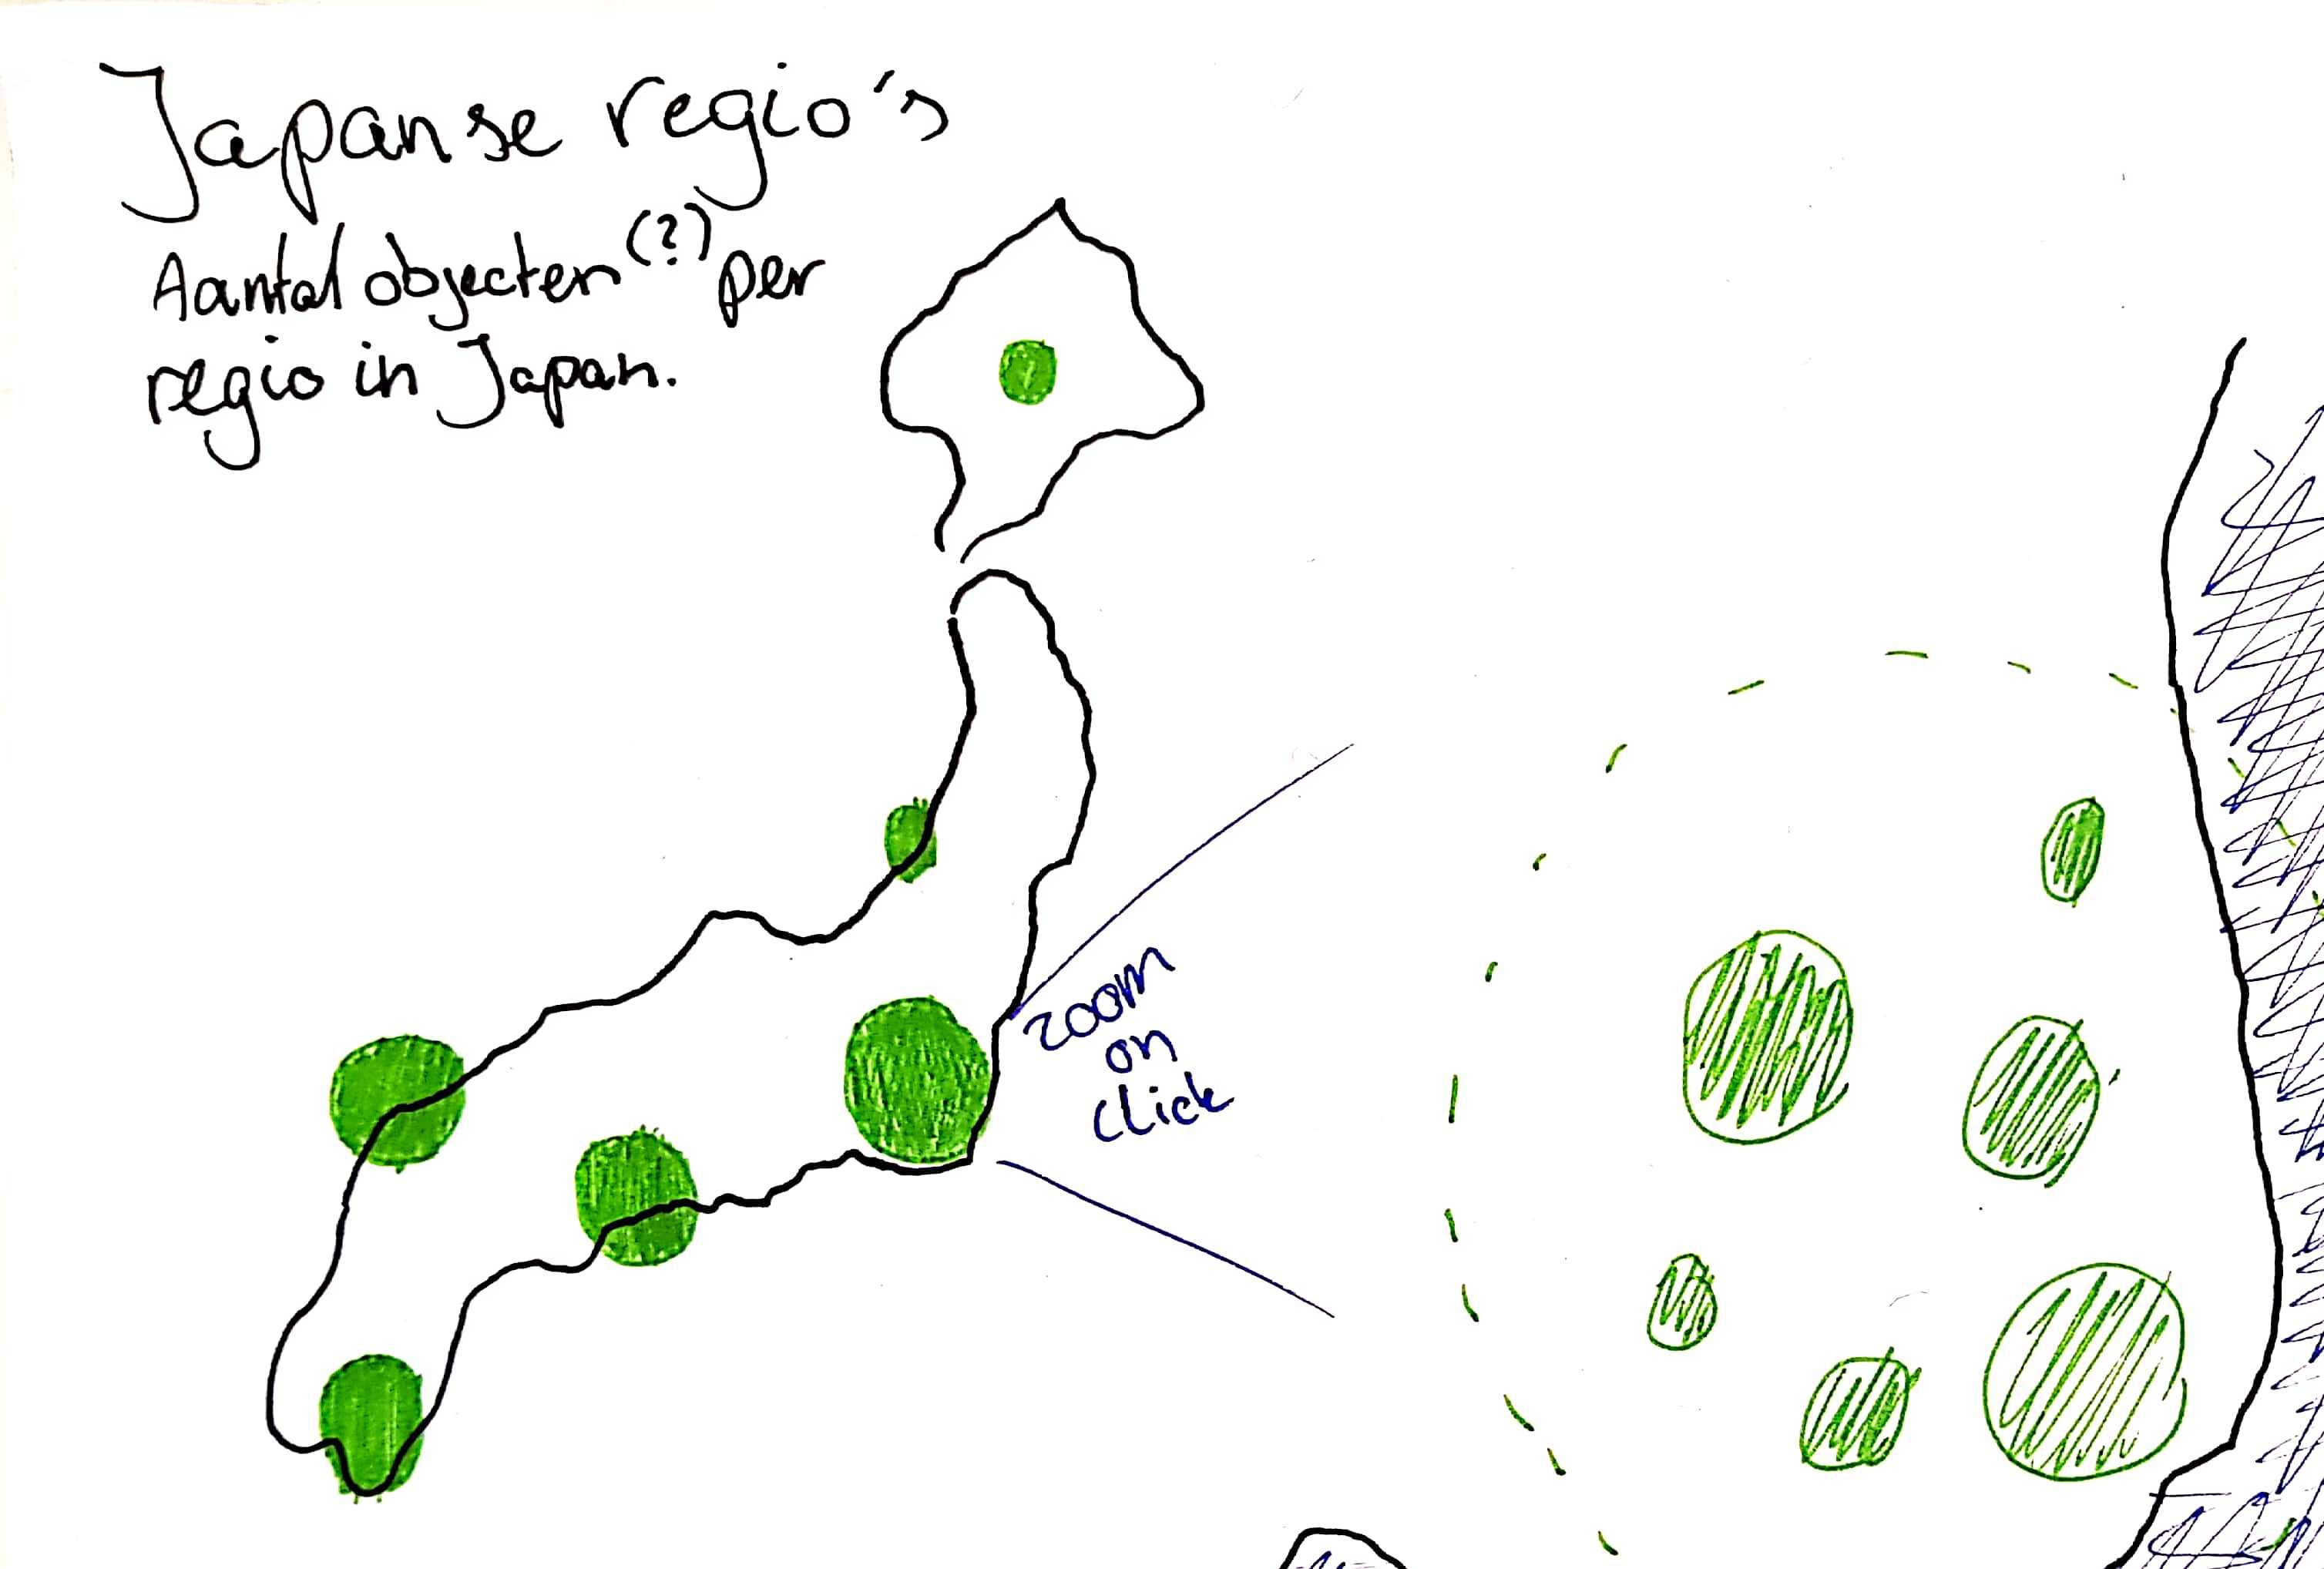 Japanse regio's
Aantal objecten (?) per
regio in Japan.
zoom
on
click